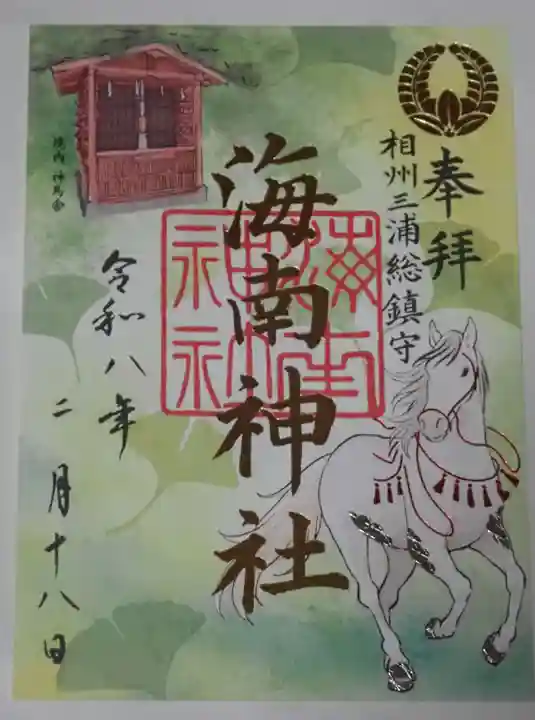 奉拝
相州三浦総鎮守
海南神社
境内 神馬舎
令和八年
二月十八日